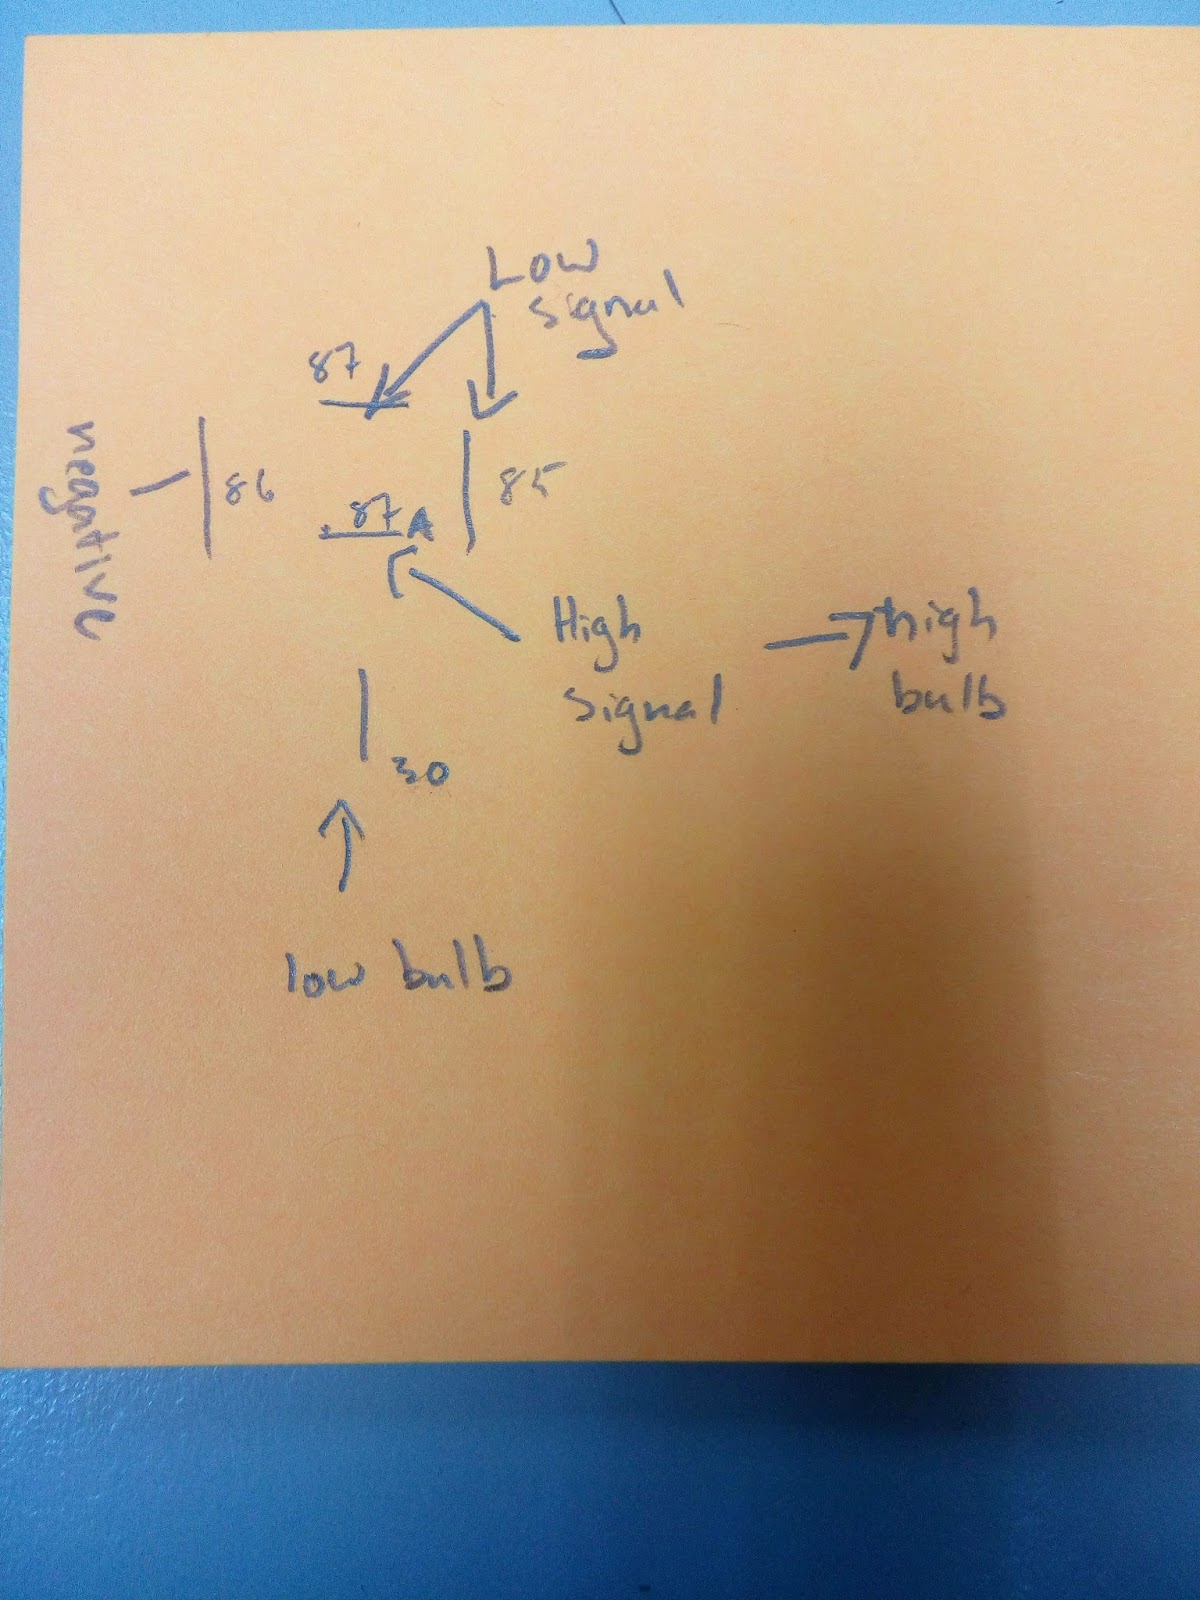 Low
signal
87
negative
86
85
87A
High
signal
high
bulb
30
low bulb